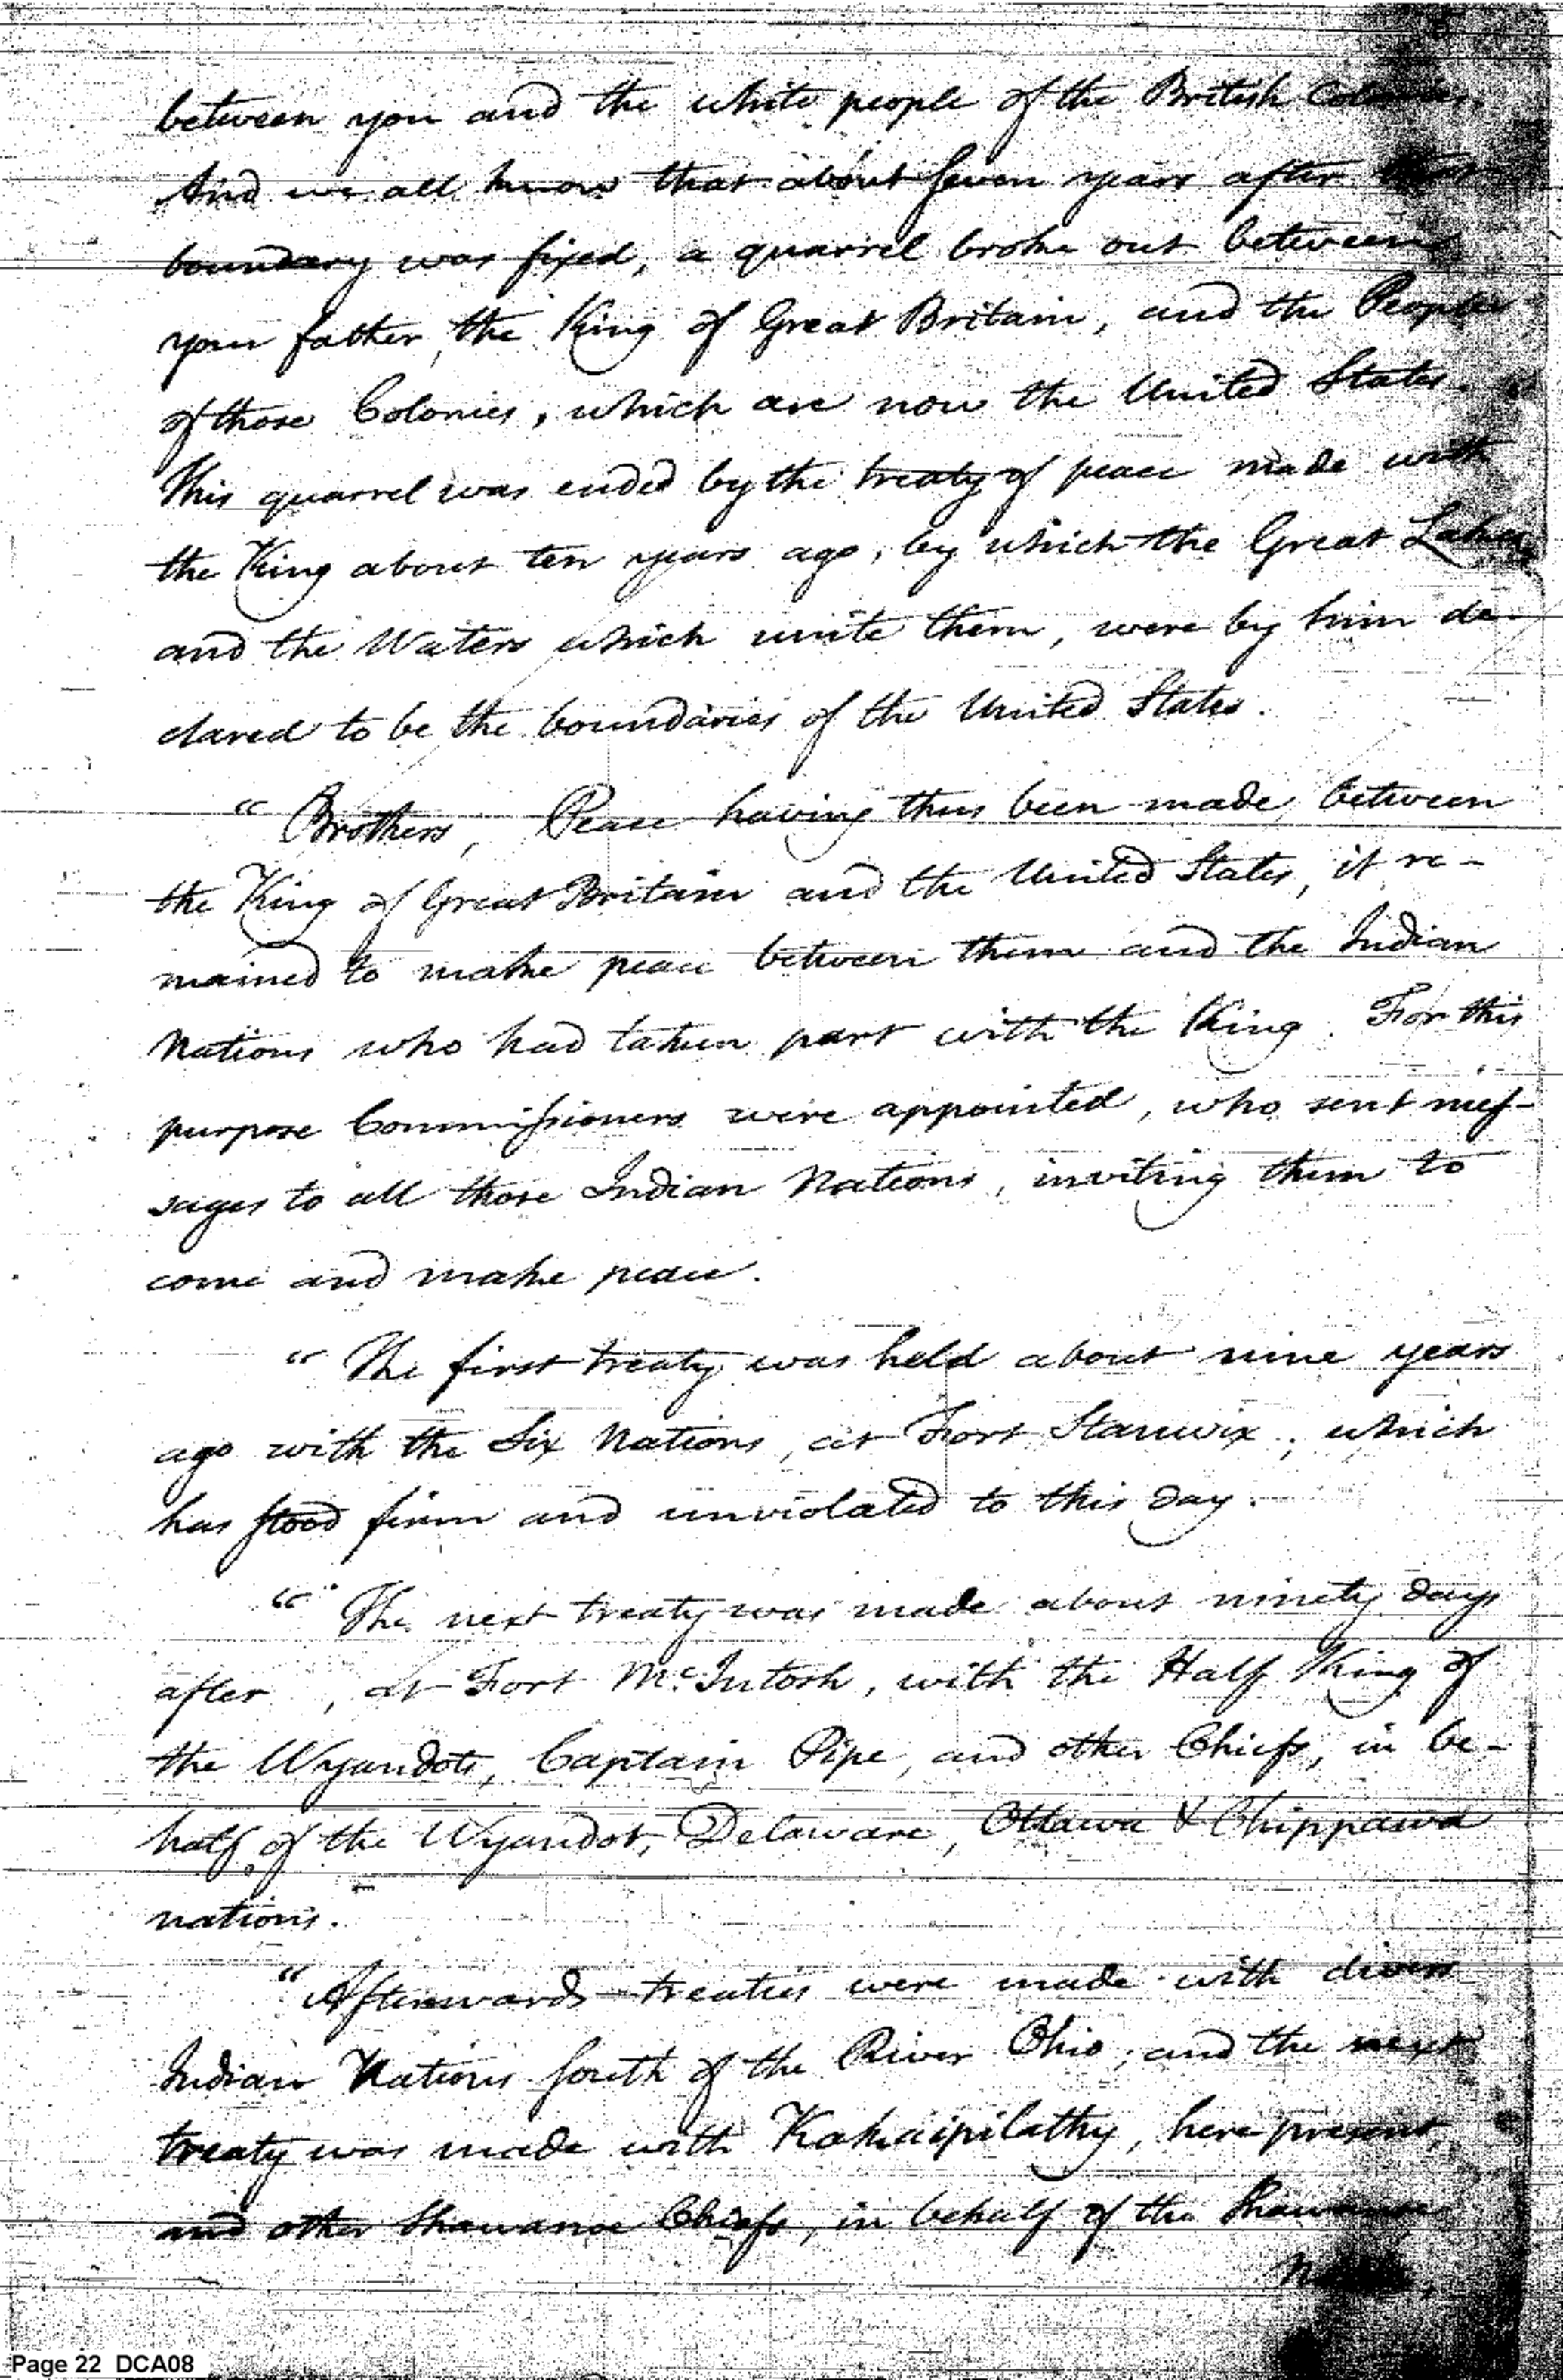 between you and the white people of the British Colonies.
And we all know that about seven years after that
boundary was fixed, a quarrel broke out between
your father, the King of Great Britain, and the People
of those Colonies, which are now the United States.
This quarrel was ended by the treaty of peace made with
the King about ten years ago, by which the Great Lakes
and the Waters which unite them, were by him de-
clared to be the boundaries of the United States.
"Brothers, Peace having thus been made, between
the King of Great Britain and the United States, it re-
mained to make peace between them and the Indian
Nations who had taken part with the King. For this
purpose Commissioners were appointed, who sent mes-
sages to all those Indian Nations, inviting them to
come and make peace.
"The first treaty was held about nine years
ago with the Six Nations, at Fort Stanwix, which
has stood firm and unviolated to this day.
"The next treaty was made about ninety days
after, at Fort McIntosh, with the Half King of
the Wyandots, Captain Pipe, and other Chiefs, in be-
half of the Wyandot, Delaware, Ottawa & Chippawa
nations.
"Afterwards treaties were made with divers
Indian Nations south of the River Ohio; and the next
treaty was made with Kakaipilathy, here present,
and other Shawanoe Chiefs, in behalf of the Shawanoe
Page 22 DCA08